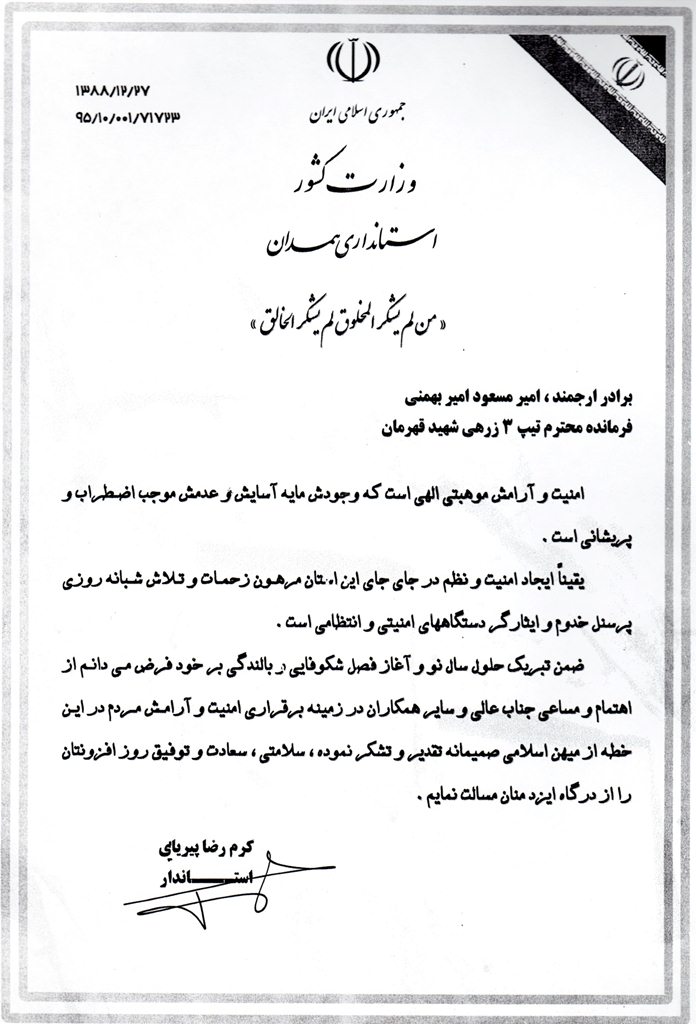 ۱۳۸۸/۱۲/۲۷
۹۵/۱۰/۰۰۱/۷۱۷۲۳
جمهوری اسلامی ایران
وزارت کشور
استانداری همدان
« من لم یشکر المخلوق لم یشکر الخالق »
برادر ارجمند ، امیر مسعود امیر بهمنی
فرمانده محترم تیپ ۳ زرهی شهید قهرمان
امنیت و آرامش موهبتی الهی است که وجودش مایه آسایش و عدمش موجب اضطراب و
پریشانی است .
یقیناً ایجاد امنیت و نظم در جای جای این استان مرهون زحمات و تلاش شبانه روزی
پرسنل خدوم و ایثارگر دستگاههای امنیتی و انتظامی است .
ضمن تبریک حلول سال نو و آغاز فصل شکوفایی و بالندگی بر خود فرض می دانم از
اهتمام و مساعی جناب عالی و سایر همکاران در زمینه برقراری امنیت و آرامش مردم در این
خطه از میهن اسلامی صمیمانه تقدیر و تشکر نموده ، سلامتی ، سعادت و توفیق روز افزونتان
را از درگاه ایزد منان مسالت نمایم .
کرم رضا پیریایی
استاندار